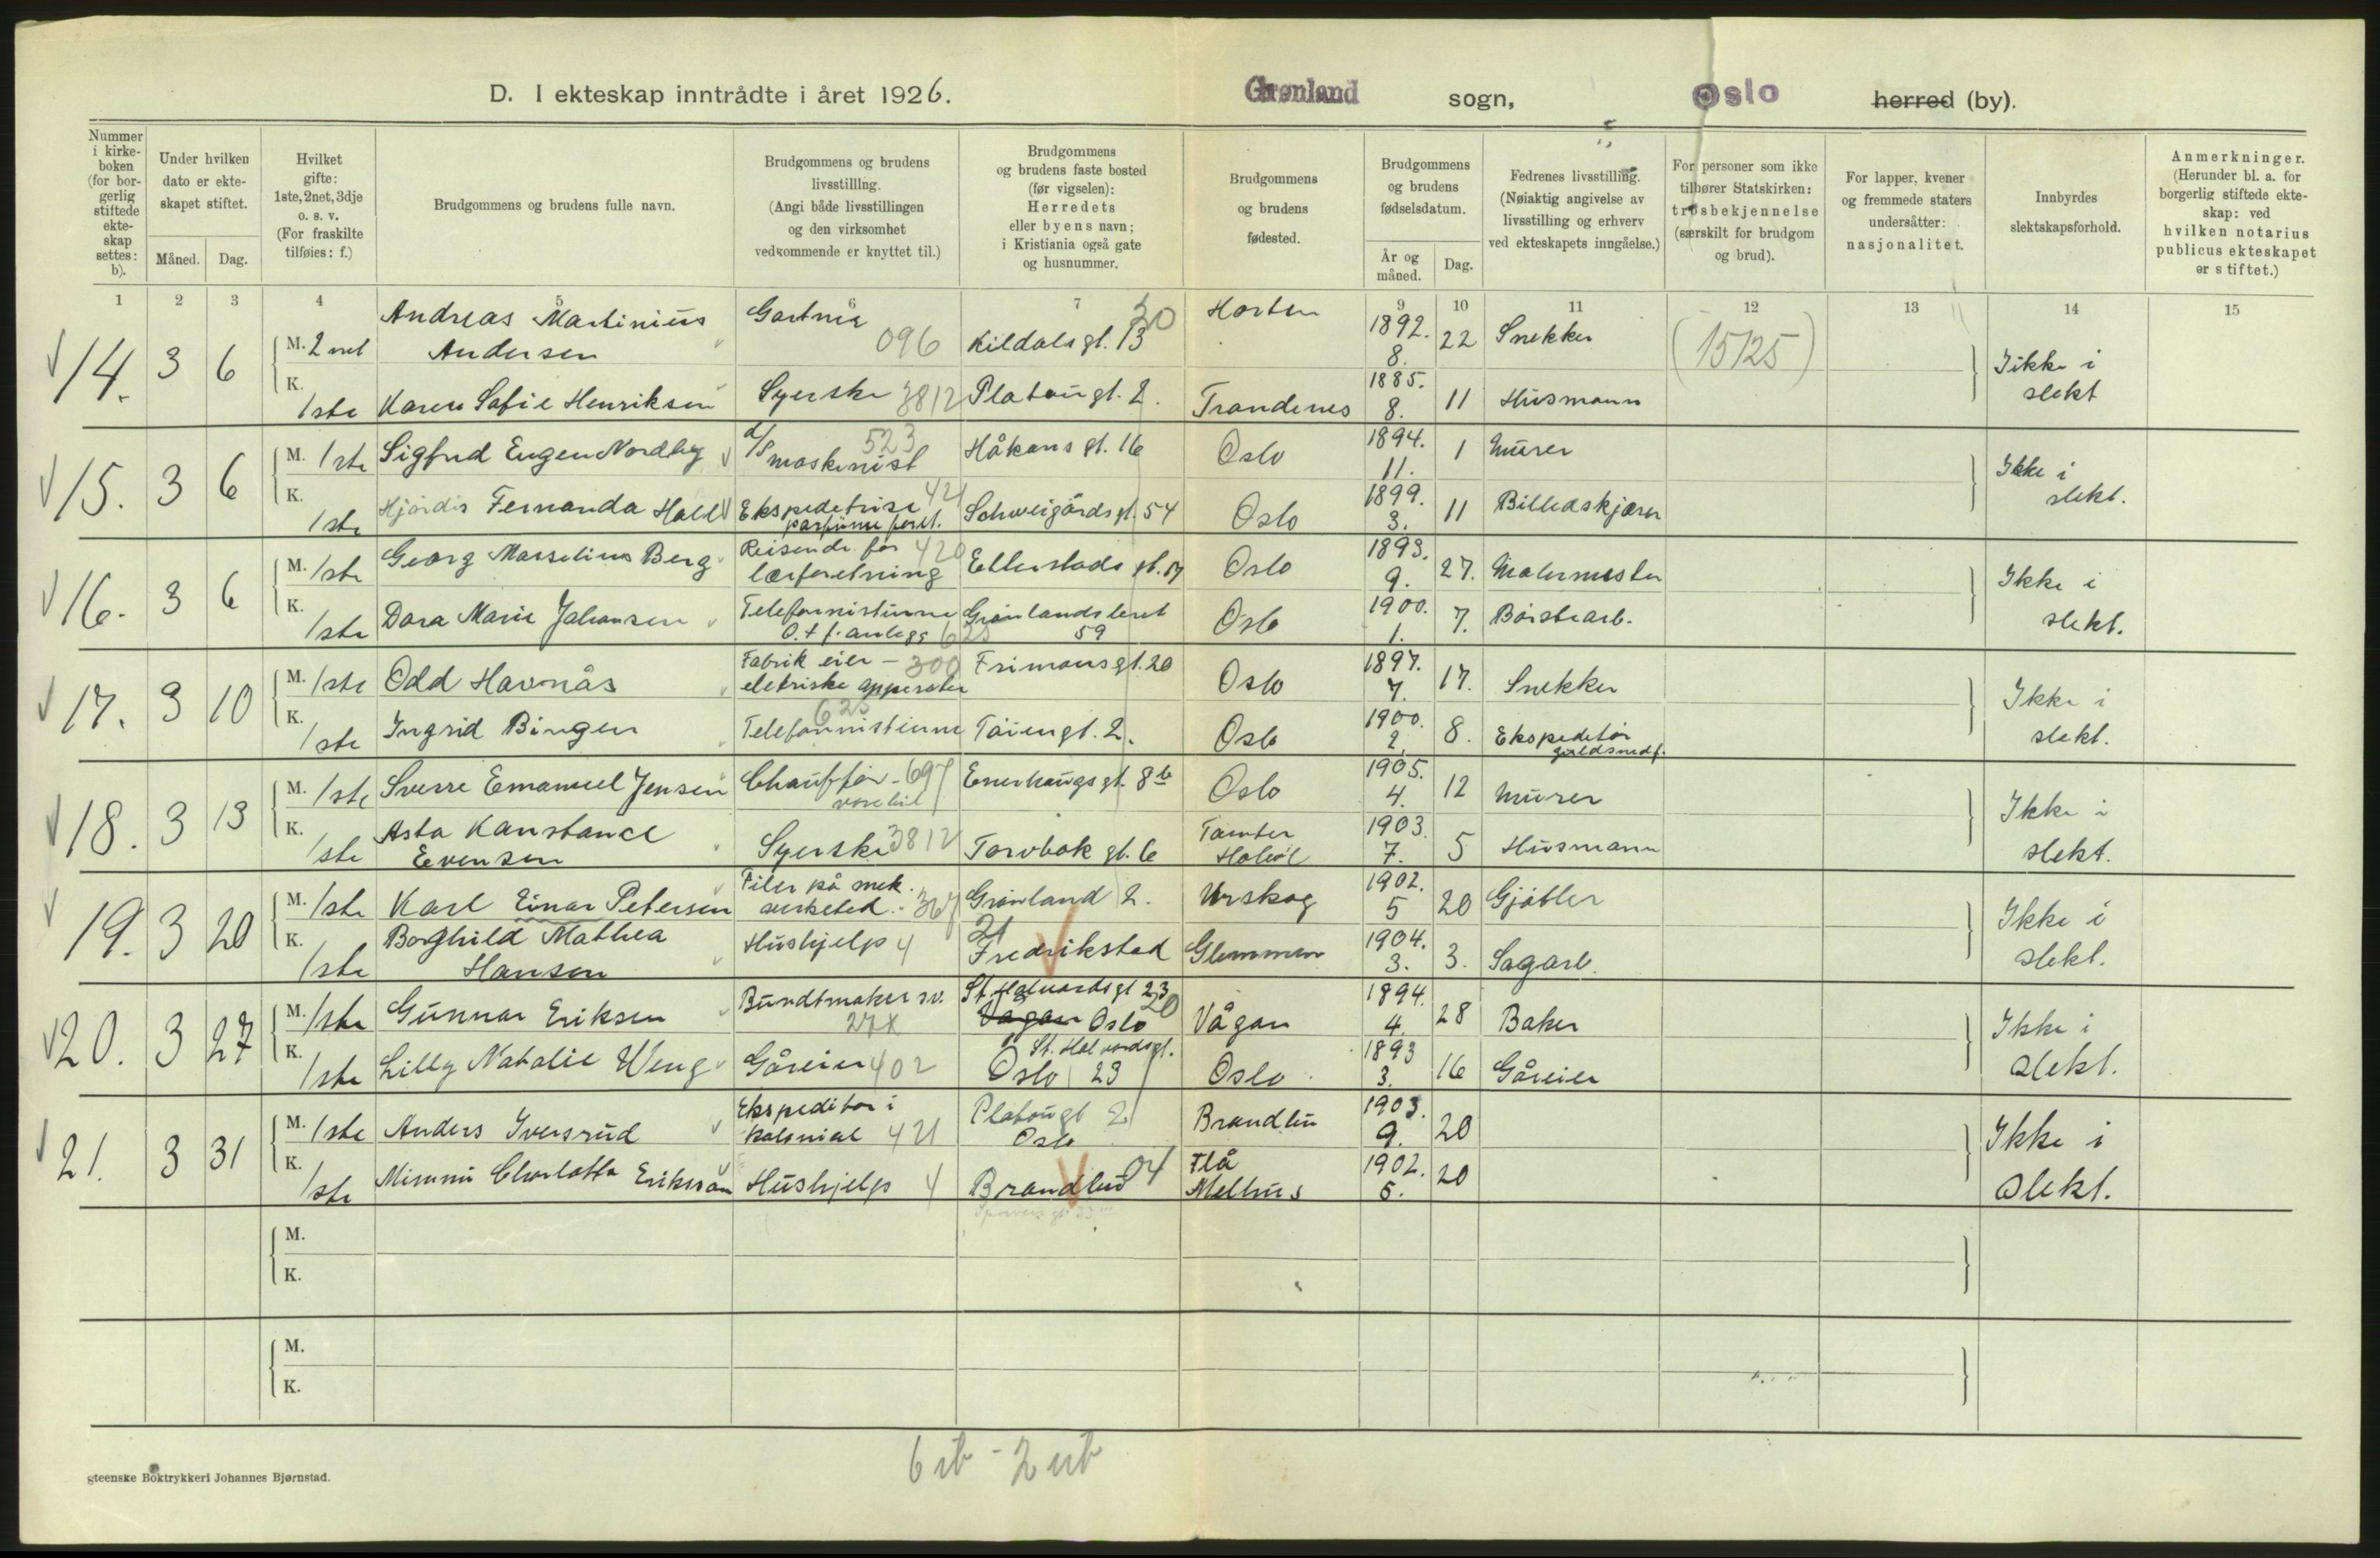 D. I ekteskap inntrådte i året 1926. Grønland sogn, Oslo herred (by).
Nummer i kirke-boken (for bor-gerlig stiftede ekte-skap settes: b).
Under hvilken dato er ekte-skapet stiftet.
Måned. Dag.
Hvilket gifte: 1ste, 2net, 3dje o. s. v. (For fraskilte tilføies: f.)
Brudgommens og brudens fulle navn.
Brudgommens og brudens livsstilling. (Angi både livsstillingen og den virksomhet vedkommende er knyttet til.)
Brudgommens og brudens faste bosted (før vigselen): Herredets eller byens navn; i Kristiania også gate og husnummer.
Brudgommens og brudens fødested.
Brudgommens og brudens fødselsdatum.
År og måned. Dag.
Fedrenes livsstilling. (Nøiaktig angivelse av livsstilling og erhverv ved ekteskapets inngåelse.)
For personer som ikke tilhører Statskirken: trosbekjennelse (særskilt for brudgom og brud).
For lapper, kvener og fremmede staters undersåtter: nasjonalitet.
Innbyrdes slektskapsforhold.
Anmerkninger. (Herunder bl. a. for borgerlig stiftede ekte-skap: ved hvilken notarius publicus ekteskapet er stiftet.)
1 2 3 4 5 6 7 9 10 11 12 13 14 15
14. 3 6 M. 2net Andreas Martinius Andersen Gartner 096 Kildals gt. 13 20 Horten 1892. 8. 22 Snekker (15125) Ikke i slekt
K. 1ste Karen Sofie Henriksen Syerske 3812 Platou gt. 2. Trandenes 1885. 8. 11 Husmann
15. 3 6 M. 1ste Sigfred Eugen Nordby d/s maskinist 523 Håkons gt. 16 Oslo 1894. 11. 1 Murer Ikke i slekt.
K. 1ste Hjørdis Fernanda Hall Ekspeditrise parfume foret. 421 Schweigårds gt. 54 Oslo 1899. 3. 11 Billedskjærer
16. 3 6 M. 1ste Georg Marselius Berg Reisende for lærforetning 420 Etterstads gt. 17 Oslo 1893. 9. 27. Malermester Ikke i slekt.
K. 1ste Dora Marie Johansen Telefonistinne O. t f. anlegg 625 Grønlandsleret 59 Oslo 1900. 1. 7. Børstearb.
17. 3 10 M. 1ste Odd Havnås Fabrik eier – elektriske apperater 300 Frimans gt. 20 Oslo 1897. 7. 17. Snekker Ikke i slekt.
K. 1ste Ingrid Bingen Telefonnistinne 625 Tøiengt. 2. Oslo 1900. 2. 8. Ekspeditør guldsmedf.
18. 3 13 M. 1ste Sverre Emanuel Jensen Chauffør - 697 varebil Enerhaugs gt. 8b Oslo 1905. 4. 12 Murer Ikke i slekt.
K. 1ste Asta Konstance Evensen Syerske 3812 Torvbak gt. 6 Tomter Hobøl 1903. 7. 5 Husmann
19. 3 20 M. 1ste Karl Einar Petersen Filer på mek. verksted. - 367 Grønland 2. Urskog 1902. 5 20 Gjøtler Ikke i slekt.
K. 1ste Borghild Mathea Hansen Hushjelp 4 21 Fredrikstad Glemmen 1904. 3. 3. Sagarb.
20. 3 27 M. 1ste Gunnar Eriksen Bundtmaker sv. 27X St. Halvardsgt 23 Vågan Oslo 20 Vågan 1894. 4. 28 Baker Ikke i slekt.
K. 1ste Lilly Natalie Weng Gåreier 402 St. Halvardsgt. Oslo 23 Oslo 1893 3. 16 Gåreier
21. 3 31 M. 1ste Anders Iversrud Ekspeditør i kolonial 421 Platougt 2 Oslo Brandbu 1903. 9. 20 Ikke i slekt.
K. 1ste Mimmi Charlotta Eriksson Hushjelp 4 Brandbu 04 Flå Melhus 1902. 5. 20
M.
K.
M.
K.
gteenske Boktrykkeri Johannes Bjørnstad.
6 ib - 2 ub